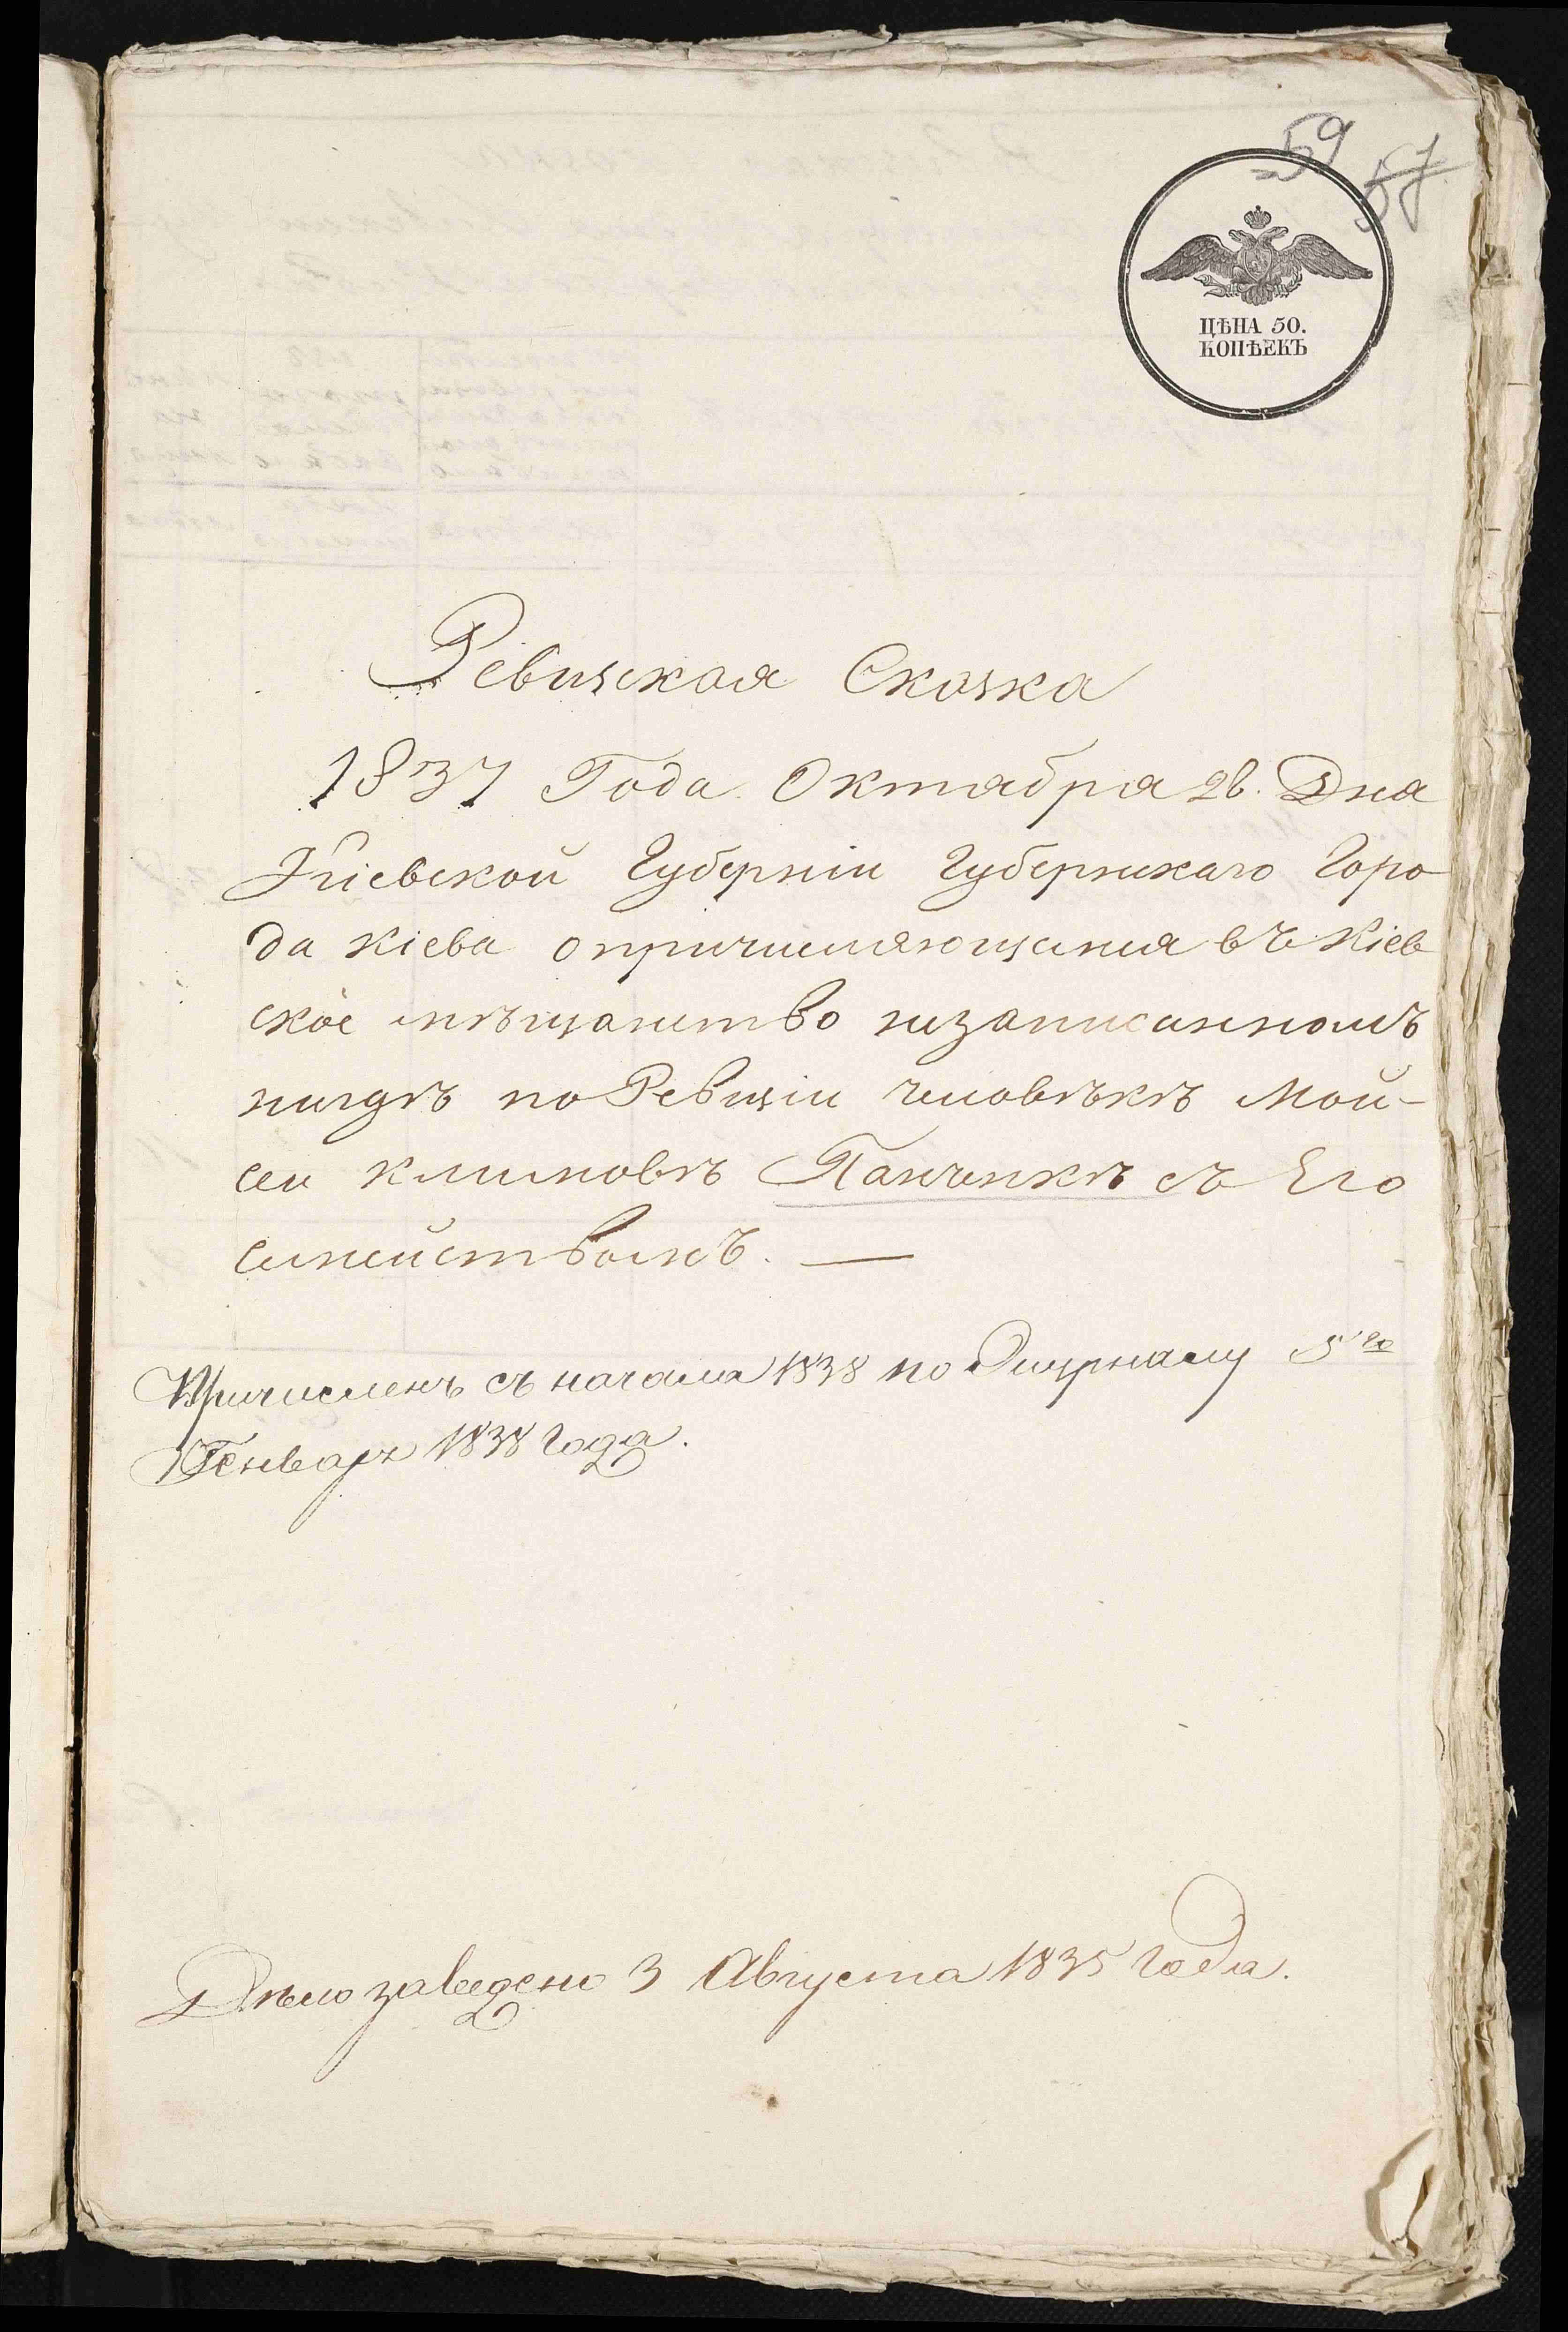 59
57
ЦѢНА 50.
КОПѢЕКЪ
Ревизская Сказка
1837 Года Октября 26. Дня
Кіевской Губерніи Губернскаго Горо
да Кіева опричисляющемся въ Кіев
ское мѣщанство незаписанномъ
нигдѣ по Ревизіи человѣкѣ Мой-
сеи Климовѣ Панченкѣ съ Его
семействомъ. —
Причисленъ съ начала 1838 по Журналу 5го
Генваря 1838 года.
Дѣло заведено 3 Августа 1835 года.